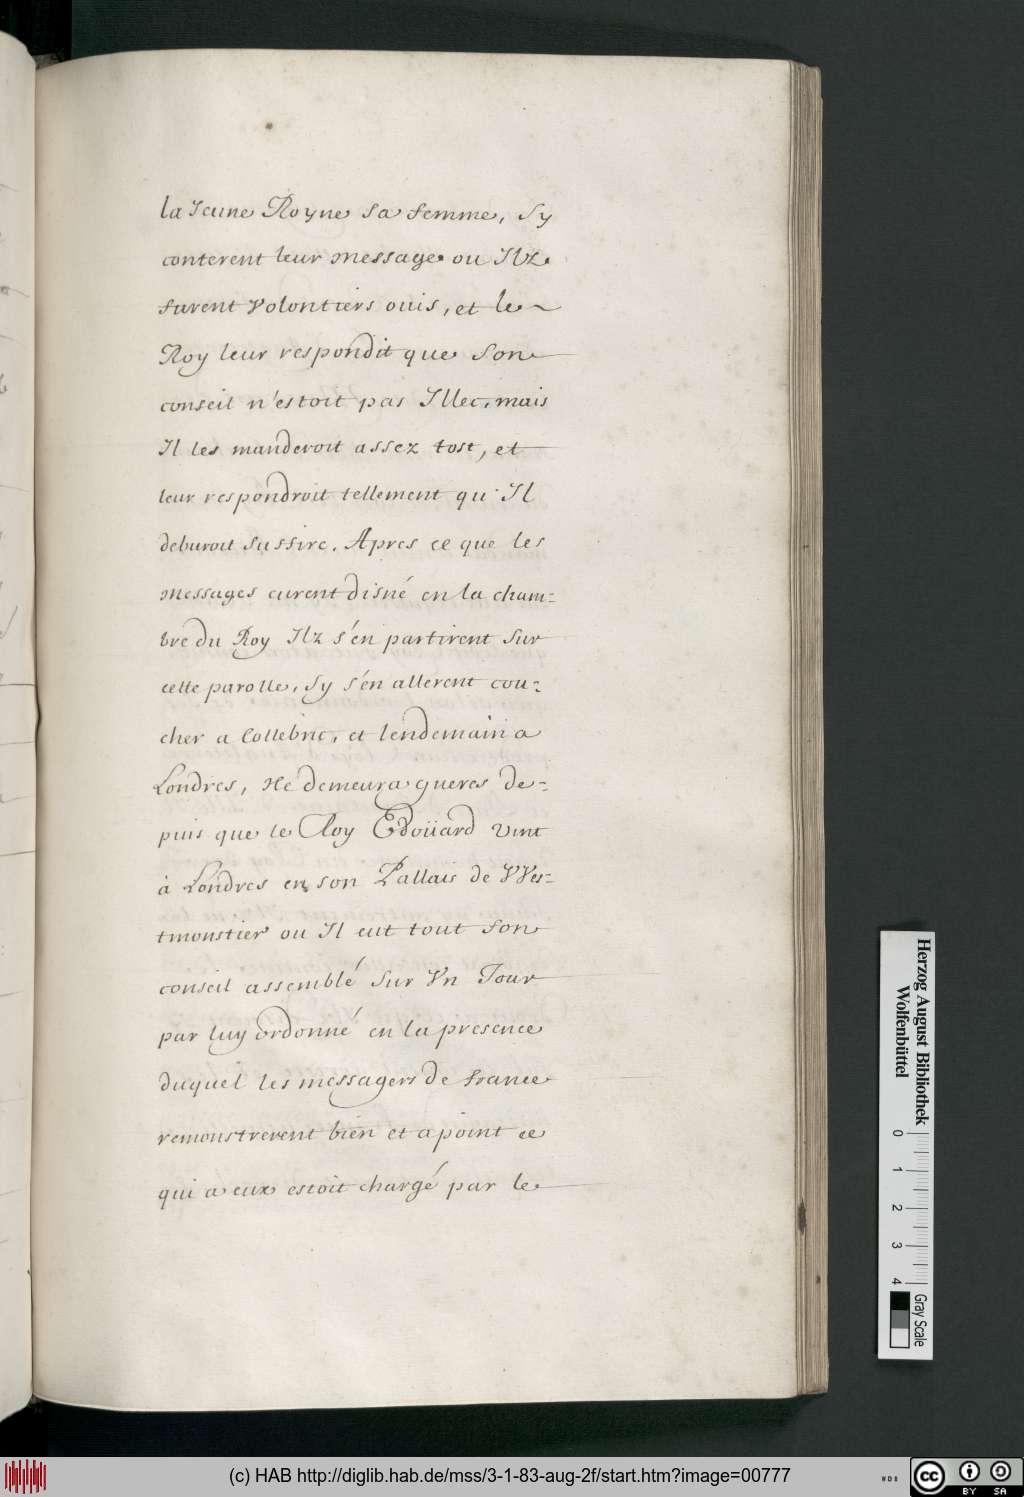 la Jeune Royne sa femme, Sy
conterent leur message ou Ilz
furent volontiers ouis, et le
Roy leur respondit que Son
conseil n'estoit pas Illec, mais
Il les manderoit assez tost, et
leur respondroit tellement qu'Il
debvroit suffire. Apres ce que les
messages eurent disné en la cham=
bre du Roy Ilz s'én partirent sur
cette parolle, Sy s'én allerent cou=
cher a Collebric, et lendemain a
Londres, Ne demeura gueres de=
puis que le Roy Edoüard vint
à Londres en son Pallais de VVes=
tmonstier ou Il eut tout son
conseil assemblé sur Vn Jour
par luy ordonné en la presence
duquel les messagers de france
remonstrerent bien et a point ce
qui a eux estoit chargé par le
Herzog August Bibliothek
Wolfenbüttel
0 1 2 3 4
Gray Scale
(c) HAB http://diglib.hab.de/mss/3-1-83-aug-2f/start.htm?image=00777
WDB
cc BY SA